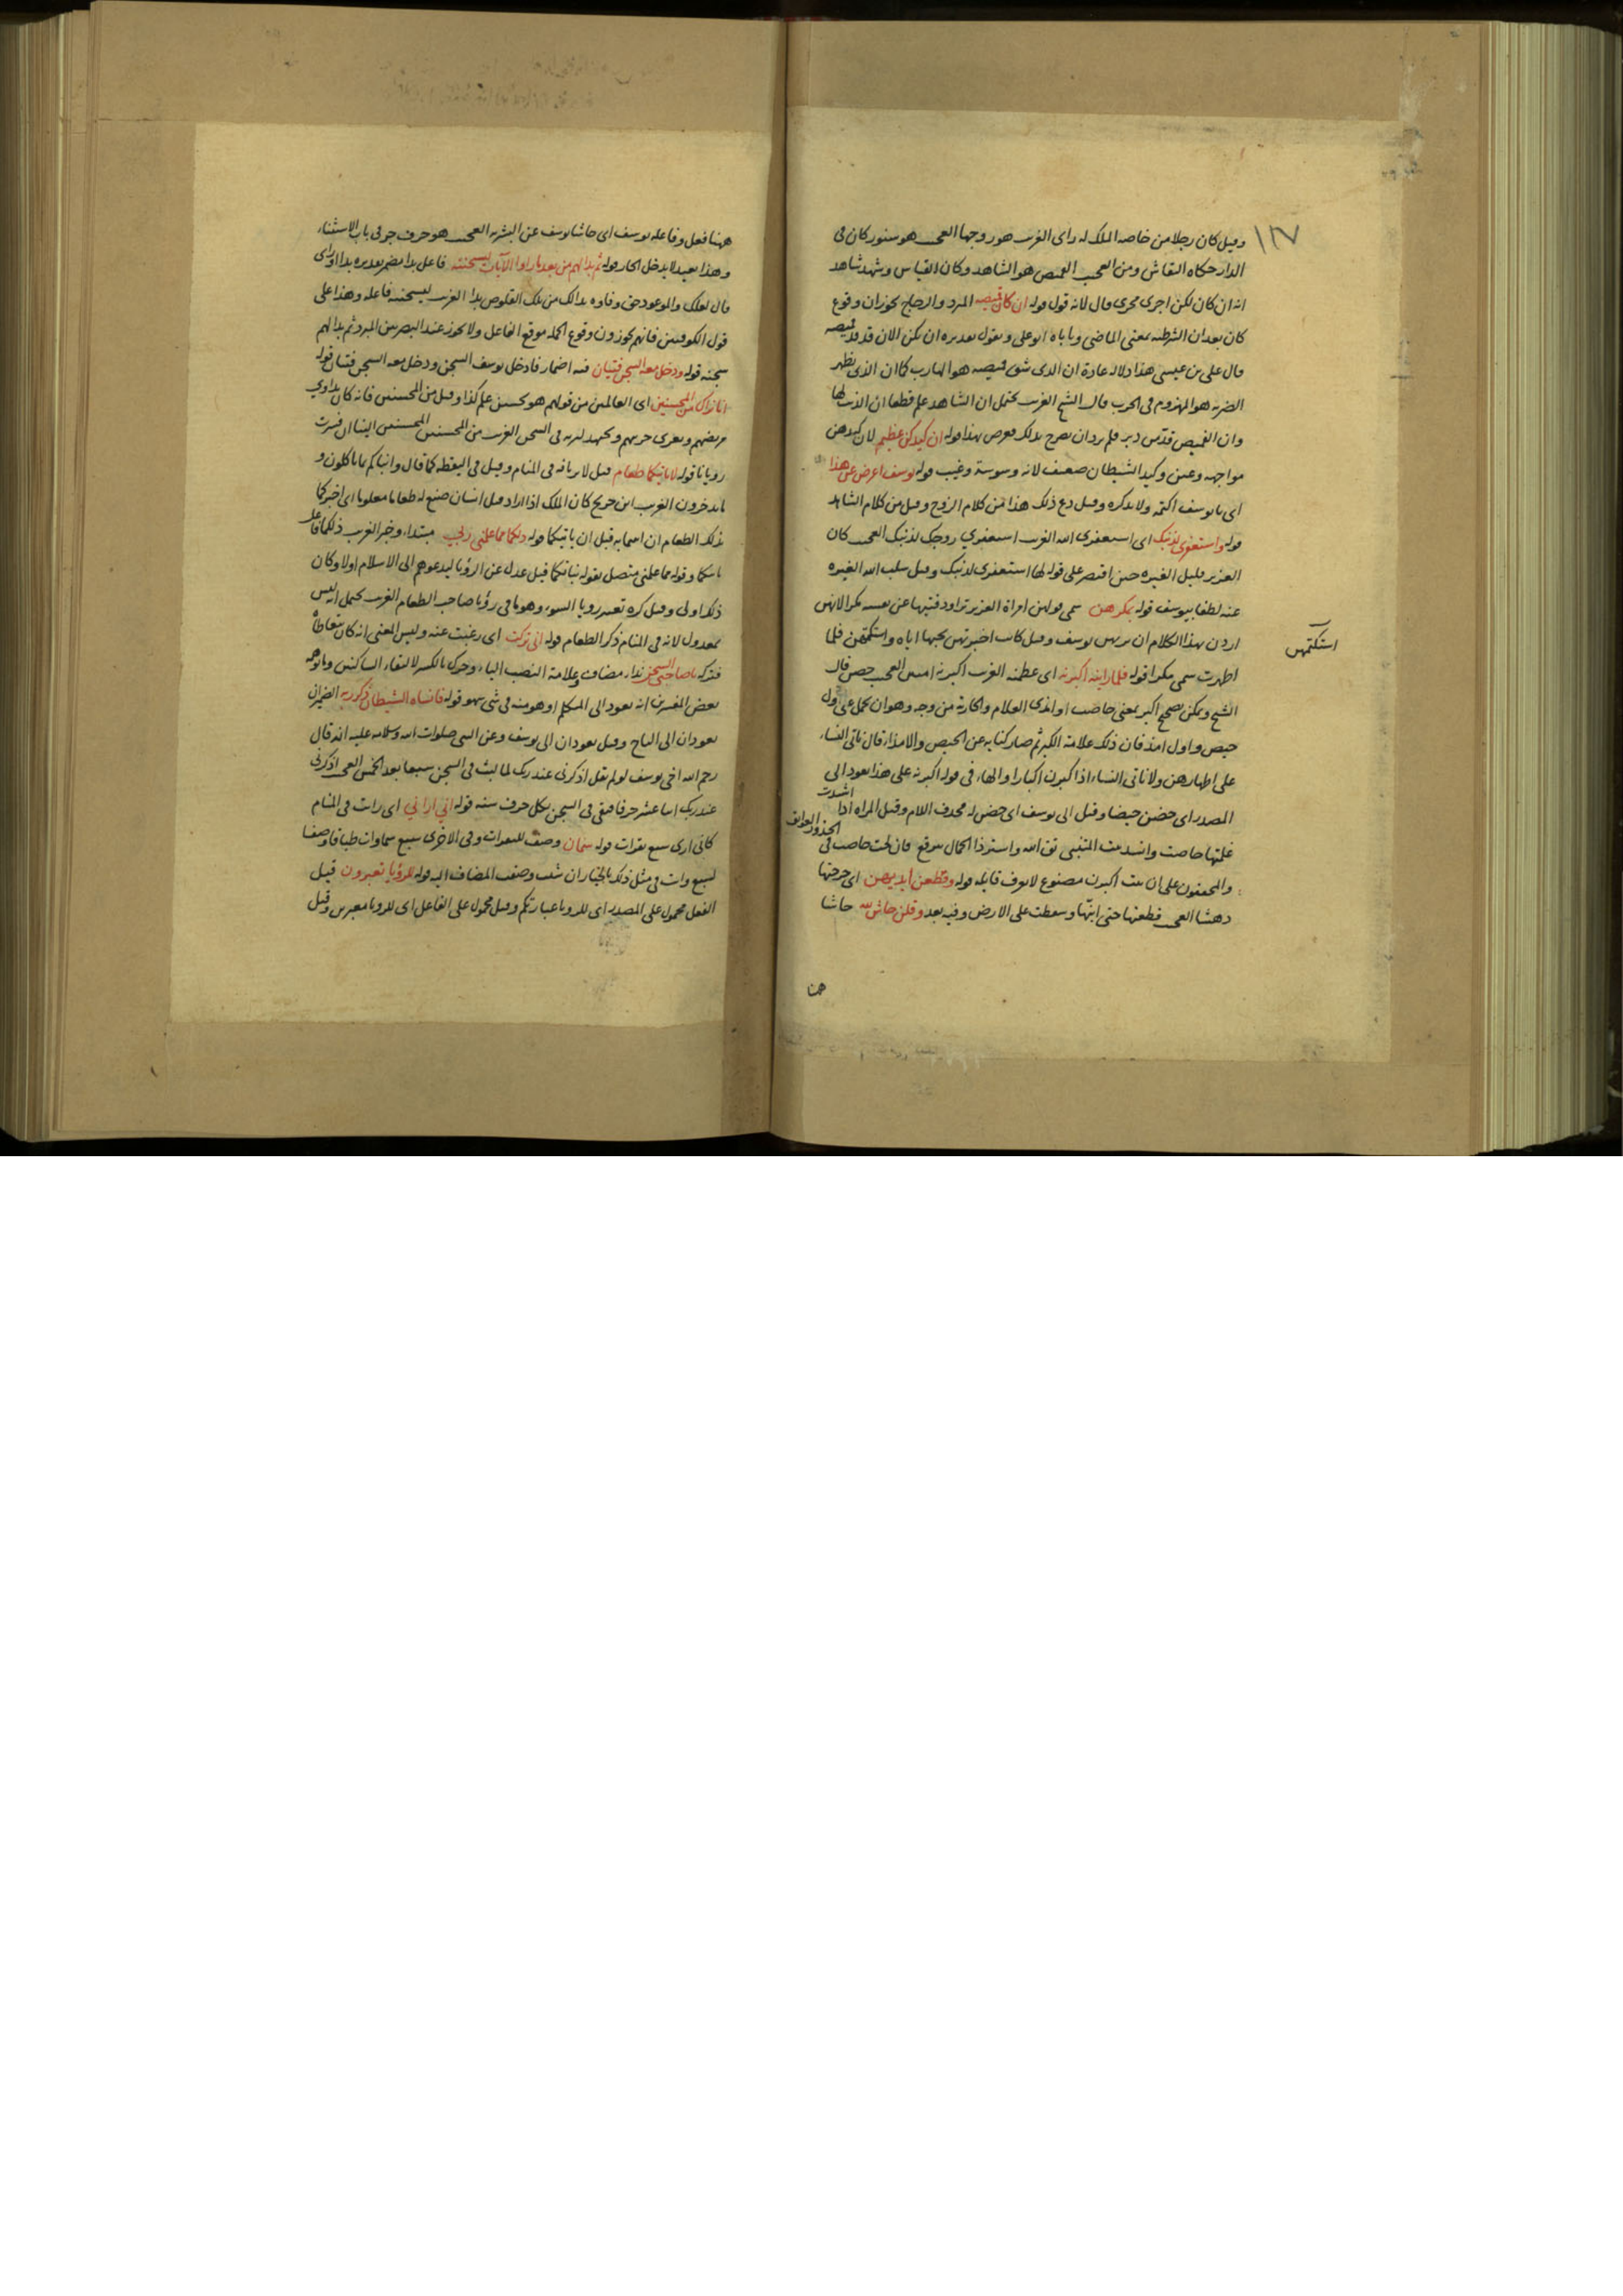 ١٢٧
وقيل كان رجلا من خاصة الملك له راى الغريب هو زوجها العجيب هو سنور كان فى
الدار حكاه النقاش ومن العجيب القميص هو الشاهد وكان القياس وشهد شاهد
انه ان كان لكن اجرى مجرى قال لانه قول قوله ان كان قميصه المبرد والزجاج يجوز ان وقوع
كان بعد ان الشرطية بمعنى الماضى وياباه ابو على ويقول تقديره ان يكن الان قد قد قميصه
قال على بن عيسى هذا دلالة عادة ان الذى شق قميصه هو الهارب كما ان الذى بظهر
الضربة هو المهزوم فى الحرب قال الشيخ الغريب يحتمل ان الشاهد علم قطعا ان الذنب لها
وان القميص قد من دبر فلم يرد ان يصرح بذلك فعرض بهذا قوله ان كيدكن عظيم لان كيدهن
مواجهة وعين وكيد الشيطان ضعيف لانه وسوسة وغيب قوله يوسف اعرض عن هذا
اى يا يوسف اكتمه ولا تذكره وقيل دع ذلك هذا من كلام الزوج وقيل من كلام الشاهد
قوله واستغفرى لذنبك اى استغفرى الله الغريب استغفري زوجك لذنبك العجيب كان
العزيز قليل الغيرة حين اقتصر على قوله لها استغفرى لذنبك وقيل سلب الله الغيرة
عنه لطفا بيوسف قوله بمكرهن سمى قولهن امراة العزيز تراود فتيها عن نفسه مكرا لانهن
اردن بهذا الكلام ان يريهن يوسف وقيل كانت اخبرتهن بحبها اياه واستكتمتهن فلما
استكتمتهن
اظهرت سمى مكرا قوله فلما راينه اكبرنه اى عظمنه الغريب اكبرنه امنين العجيب حضن قال
الشيخ ويمكن تصحيح اكبر بمعنى حاضت او امذى الغلام والجارية من وجه وهو ان يحمل على اول
حيض واول امذ فان ذلك علامة الكبر ثم صار كناية عن الحيض والامذاء قال ناتى النساء
على اطهارهن ولا ناتى النساء اذا اكبرن اكبارا والهاء فى قوله اكبرنه على هذا يعود الى
المصدر اى حضن حيضا وقيل الى يوسف اى حضن له فحذف اللام وقيل المراة اذا اشتدت
غلمتها حاضت وانشد بيت المتنبى تق الله واستر ذا الجمال ببرقع فان لحت حاضت فى الخدور العواتق
والمحققون على ان بيت اكبرن مصنوع لا يعرف قايله قوله وقطعن ايديهن اى جرحنها
دهشا العجيب قطعنها حتى ابنّها وسقطت على الارض وفيه بعد وقلن حاش لله حاشا
هنا
ههنا فعل وفاعله يوسف اى حاشا يوسف عن البشرية العجيب هو حرف جر فى باب الاستثناء
وهذا بعيد لا يدخل الجار قوله ثم بدا لهم من بعد ما راوا الآيات ليسجننه فاعل بدا مضمر تقديره بدا او راى
قال لعلك والموعود حق وفاوه بدا لك من تلك القلوص بدا الغريب ليسجننه فاعله وهذا على
قول الكوفيين فانهم يجوزون وقوع الجملة موقع الفاعل ولا يجوز عند البصريين المبرد ثم بدا لهم
سجنه قوله ودخل معه السجن فتيان فيه اضمار فادخل يوسف السجن ودخل معه السجن فتيان قوله
انا نراك من المحسنين اى العالمين من قولهم هو يحسن علم كذا وقيل من المحسنين فانه كان يداوي
مريضهم ويعزى حزينهم ويجتهد لربه فى السجن الغريب من المحسنين المحسنين الينا ان فسرت
رويانا قوله لا ياتيكما طعام قيل لا يريانه فى المنام وقيل فى اليقظة كما قال وانبئكم بما تاكلون و
ما تدخرون الغريب ابن جريج كان الملك اذا اراد قتل انسان صنع له طعاما معلوما اى اخبركما
بذلك الطعام ان اصابه قبل ان ياتيكما قوله ذلكما مما علمنى ربي مبتداء وخبر الغريب ذلكما فاعل
ياتيكما وقوله مما علمنى متصل بقوله نباتكما قيل عدل عن الرؤيا ليدعوهم الى الاسلام اولا وكان
ذلك اولى وقيل كره تعبير رويا السوء وهو ما فى رؤيا صاحب الطعام الغريب يحتمل انه ليس
بمعدول لانه فى المنام ذكر الطعام قوله انى تركت اى رغبت عنه وليس المعنى انه كان يتعاطاه
فتركه يا صاحبى السجن نداء مضاف وعلامة النصب الياء وحرك بالكسر لالتقاء الساكنين وما توهمه
بعض المفسرين انه يعود الى المتكلم او هو منه فى شى سهو قوله فانساه الشيطان ذكر ربه الضميران
يعودان الى الناجى وقيل يعودان الى يوسف وعن النبى صلوات الله وسلامه عليه انه قال
رحم الله اخى يوسف لو لم يقل اذكرنى عند ربك لما لبث فى السجن سبعا بعد الخمس العجيب اذكرنى
عند ربك اثنا عشر حرفا فبقى فى السجن بكل حرف سنة قوله اني اراني اى رايت فى المنام
كانى ارى سبع بقرات قوله سمان وصف للبقرات وفى الاخرى سبع سماوات طباقا وصفا
لسبع وانت فى مثل ذلك بالخيار ان شئت وصفت المضاف اليه قوله للرؤيا تعبرون قيل
الفعل محمول على المصدر اى للرويا عبارتكم وقيل محمول على الفاعل اى للرويا معبرين وقيل